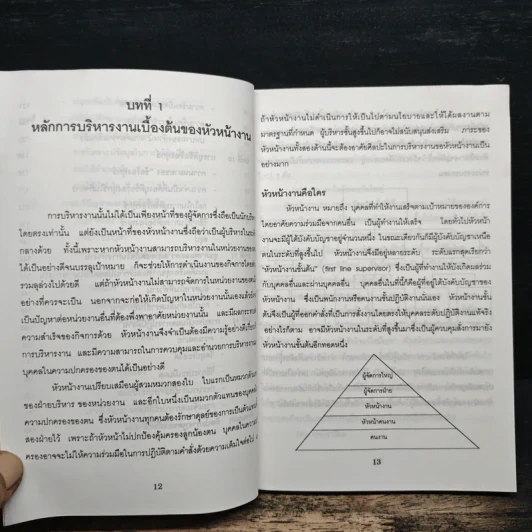 บทที่ 1
หลักการบริหารงานเบื้องต้นของหัวหน้างาน
การบริหารงานนั้นไม่ได้เป็นเพียงหน้าที่ของผู้จัดการซึ่งถือเป็นนักบริหาร
โดยตรงเท่านั้น แต่ยังเป็นหน้าที่ของหัวหน้างานซึ่งถือว่าเป็นผู้บริหารใน
กลางด้วย ทั้งนี้เพราะหากหัวหน้างานสามารถบริหารงานในหน่วยงานของ
ได้เป็นอย่างดีจนบรรลุเป้าหมาย ก็จะช่วยให้การดำเนินงานของกิจการโดย
รวมลุล่วงไปด้วยดี แต่ถ้าหัวหน้างานไม่สามารถจัดการในหน่วยงานของตน
อย่างที่ควรจะเป็น นอกจากจะก่อให้เกิดปัญหาในหน่วยงานนั้นเองแล้วยัง
เป็นปัญหาต่อหน่วยงานอื่นที่ต้องพึ่งพาอาศัยหน่วยงานนั้น และมีผลกระทบ
ความสำเร็จของกิจการด้วย หัวหน้างานจึงจำเป็นต้องมีความรู้อย่างดีเรื่อง
การบริหารงาน และมีความสามารถในการควบคุมและอำนวยการบริหาร
บุคคลในความปกครองของตนได้เป็นอย่างดี
หัวหน้างานเปรียบเสมือนผู้สวมหมวกสองใบ ใบแรกเป็นหมวกตัวแทน
ของฝ่ายบริหาร ของหน่วยงาน และอีกใบหนึ่งเป็นหมวกตัวแทนของบุคคลใน
ความปกครองของตน ซึ่งหัวหน้างานทุกคนต้องรักษาดุลย์ของการเป็นตัวแทน
สองฝ่ายไว้ เพราะถ้าหัวหน้าไม่ปกป้องคุ้มครองลูกน้องตน บุคคลในความ
ครองอาจจะไม่ให้ความร่วมมือในการปฏิบัติตามคำสั่งด้วยความเต็มใจต่อไป
12
ถ้าหัวหน้างานไม่ดำเนินการให้เป็นไปตามนโยบายและให้ได้ผลงานตาม
มาตรฐานที่กำหนด ผู้บริหารชั้นสูงขึ้นไปก็อาจไม่สนับสนุนส่งเสริม ภาระของ
หัวหน้างานทั้งสองด้านนี้จึงจะต้องอาศัยศิลปะในการบริหารงานของหัวหน้างานเป็น
อย่างมาก
หัวหน้างานคือใคร
หัวหน้างาน หมายถึง บุคคลที่ทำให้งานเสร็จตามเป้าหมายขององค์การ
โดยอาศัยความร่วมมือจากคนอื่น เป็นผู้ทำงานให้เสร็จ โดยทั่วไปหัวหน้า
งานจะมีผู้ใต้บังคับบัญชาอยู่จำนวนหนึ่ง ในขณะเดียวกันก็มีผู้บังคับบัญชาเหนือ
ตนในระดับที่สูงขึ้นไป หัวหน้างานจึงมีอยู่หลายระดับ ระดับแรกสุดเรียกว่า
"หัวหน้างานชั้นต้น" (first line supervisor) ซึ่งเป็นผู้ที่ทำงานให้บังเกิดผลร่วม
กับบุคคลอื่นและผ่านบุคคลอื่น บุคคลอื่นในที่นี้ก็คือผู้ที่อยู่ใต้บังคับบัญชาของ
หัวหน้างาน ซึ่งเป็นพนักงานหรือคนงานชั้นปฏิบัติงานนั่นเอง หัวหน้างานชั้น
ต้นจึงเป็นผู้ที่ออกคำสั่งที่เป็นการสั่งงานโดยตรงให้บุคคลระดับปฏิบัติงานแท้จริง
อย่างไรก็ตาม อาจมีหัวหน้างานในระดับที่สูงขึ้นมาซึ่งเป็นผู้ควบคุมสั่งการมายัง
หัวหน้างานชั้นต้นอีกทอดหนึ่ง
ผู้จัดการใหญ่
ผู้จัดการฝ่าย
หัวหน้างาน
หัวหน้าคนงาน
คนงาน
13